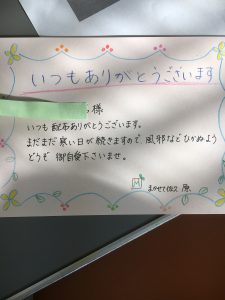 いつもありがとうございます
様
いつも配布ありがとうございます。
まだまだ寒い日が続きますので、風邪などひかぬよう
どうぞ 御自愛下さいませ。
M
まかせて佐久 原